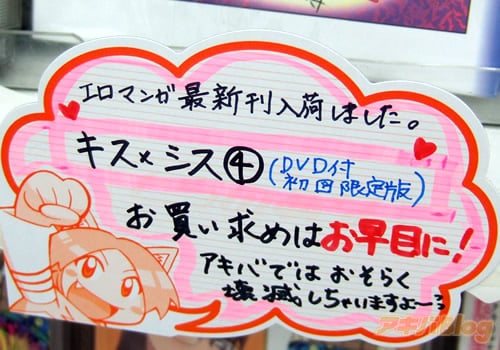 エロマンガ最新刊入荷しました。
キス×シス④(DVD付初回限定版)
お買い求めはお早目に!
アキバではおそらく
壊滅しちゃいますよー?
アキバBlog